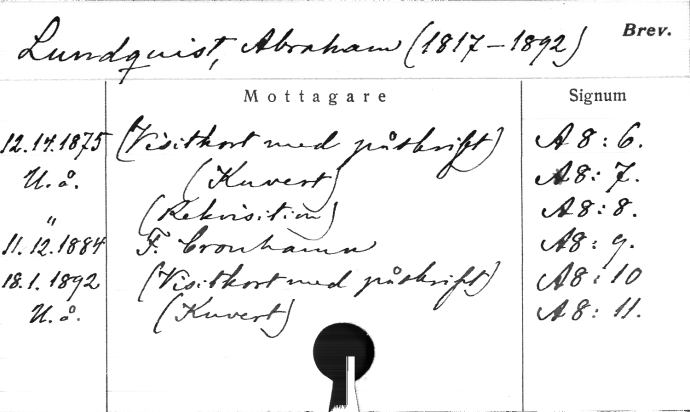 Lundquist, Abraham (1817–1892) Brev.
Mottagare Signum
12.14.1875 (Visitkort med påskrift) A8:6.
U.å. (Kuvert) A8:7.
" (Rekvisition) A8:8.
11.12.1884 F. Cronhamn A8:9.
18.1.1892 (Visitkort med påskrift) A8:10
U.å. (Kuvert) A8:11.